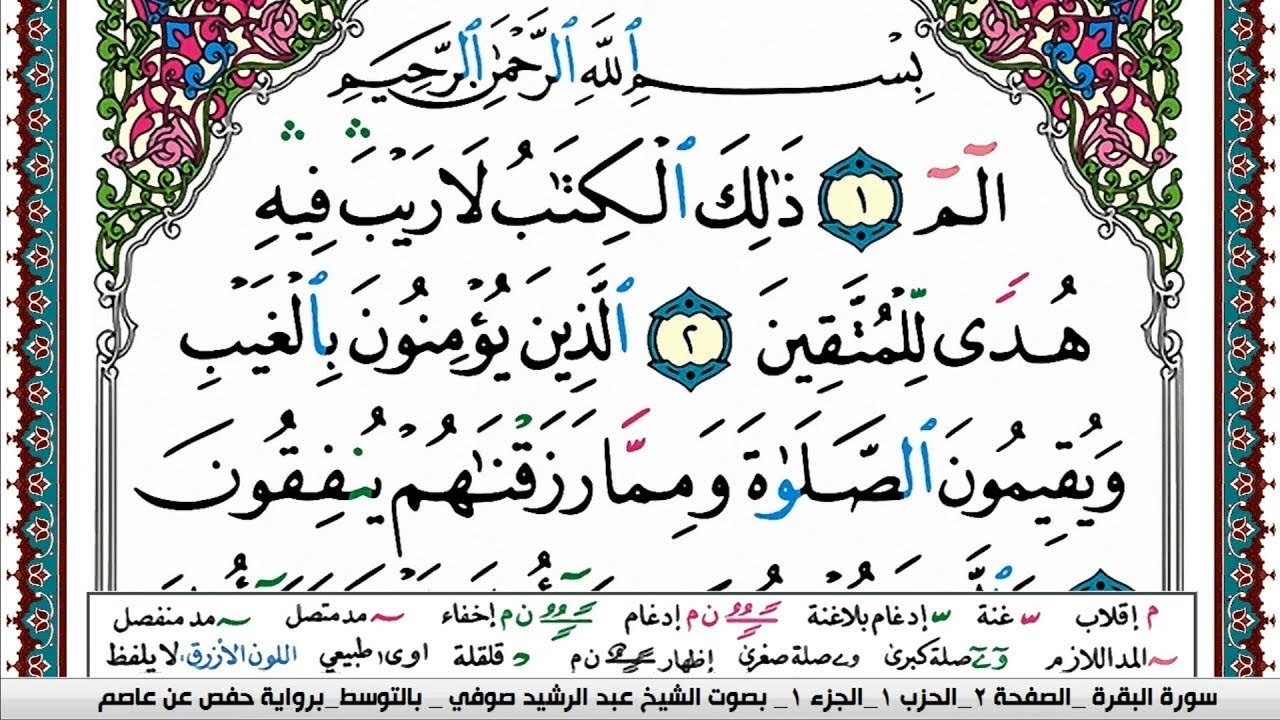 بِسْمِ ٱللَّهِ ٱلرَّحْمَٰنِ ٱلرَّحِيمِ
الٓمٓ ١ ذَٰلِكَ ٱلْكِتَٰبُ لَا رَيْبَ ۛ فِيهِ ۛ
هُدًى لِّلْمُتَّقِينَ ٢ ٱلَّذِينَ يُؤْمِنُونَ بِٱلْغَيْبِ
وَيُقِيمُونَ ٱلصَّلَوٰةَ وَمِمَّا رَزَقْنَٰهُمْ يُنفِقُونَ
م إقلاب غنة إدغام بلاغنة ن م إدغام ن م إخفاء مد متصل مد منفصل
المد اللازم صلة كبرى صلة صغرى إظهار ن م قلقلة اوى طبيعي اللون الأزرق، لا يلفظ
سورة البقرة _الصفحة ٢_الحزب ١_الجزء ١_ بصوت الشيخ عبد الرشيد صوفي _ بالتوسط_برواية حفص عن عاصم